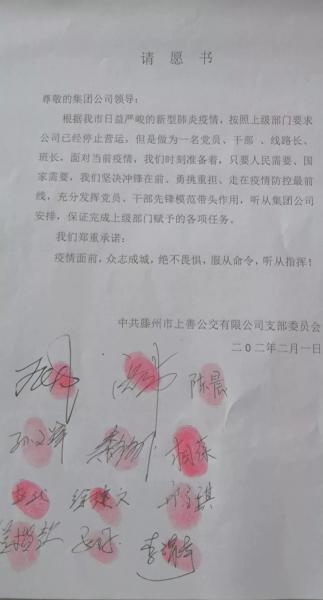 请愿书
尊敬的集团公司领导:
根据我市日益严峻的新型肺炎疫情，按照上级部门要求
公司已经停止营运，但是做为一名党员、干部、线路长、
班长，面对当前疫情，我们时刻准备着，只要人民需要、国
家需要，我们坚决冲锋在前、勇挑重担、走在疫情防控最前
线，充分发挥党员、干部先锋模范带头作用，听从集团公司
安排，保证完成上级部门赋予的各项任务。
我们郑重承诺:
疫情面前，众志成城，绝不畏惧，服从命令，听从指挥!
中共滕州市上善公交有限公司支部委员会
二0二年二月一日
陈晨